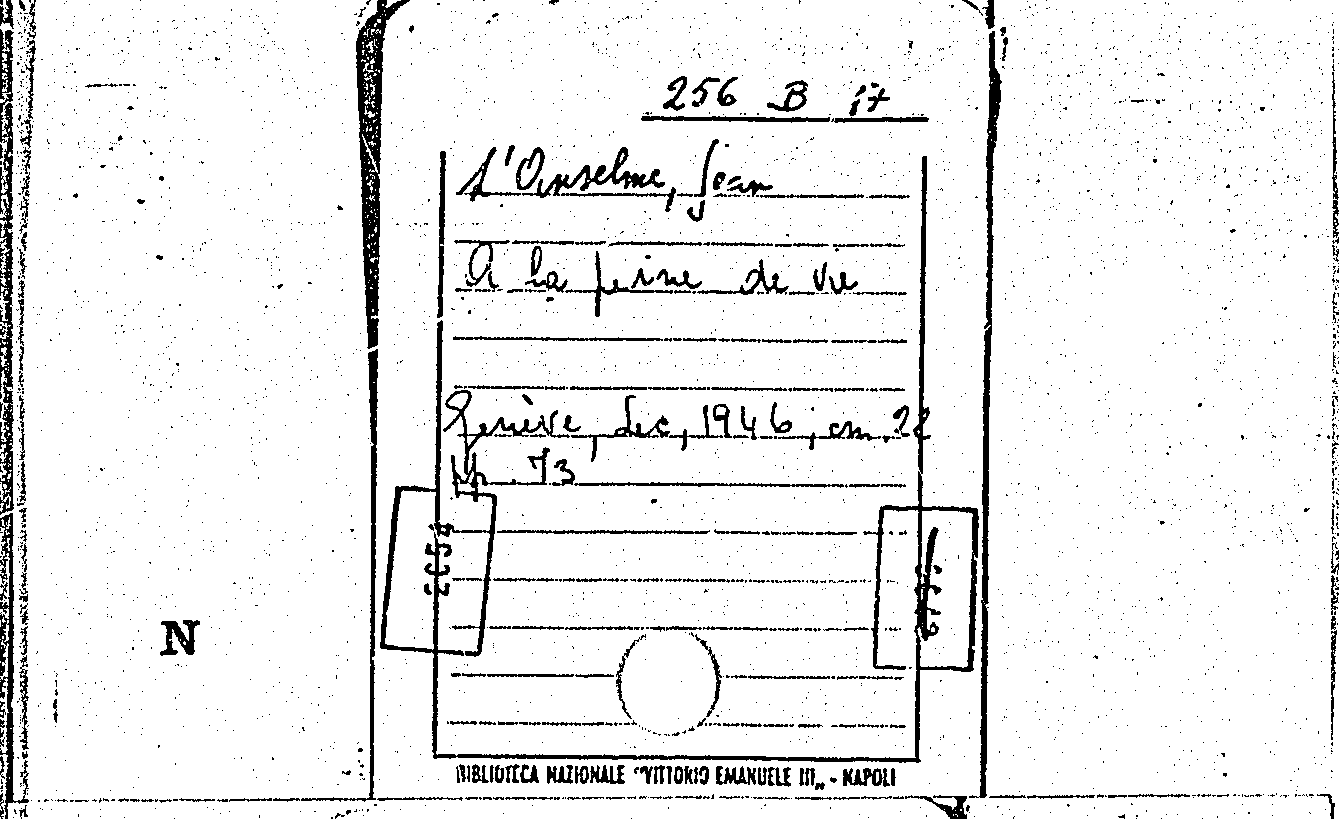 256 B 17
L'Anselme, Jean
A la peine de vie
Genève, Lec, 1946, cm. 22
pp. 73
N
BIBLIOTECA NAZIONALE "VITTORIO EMANUELE III„ - NAPOLI